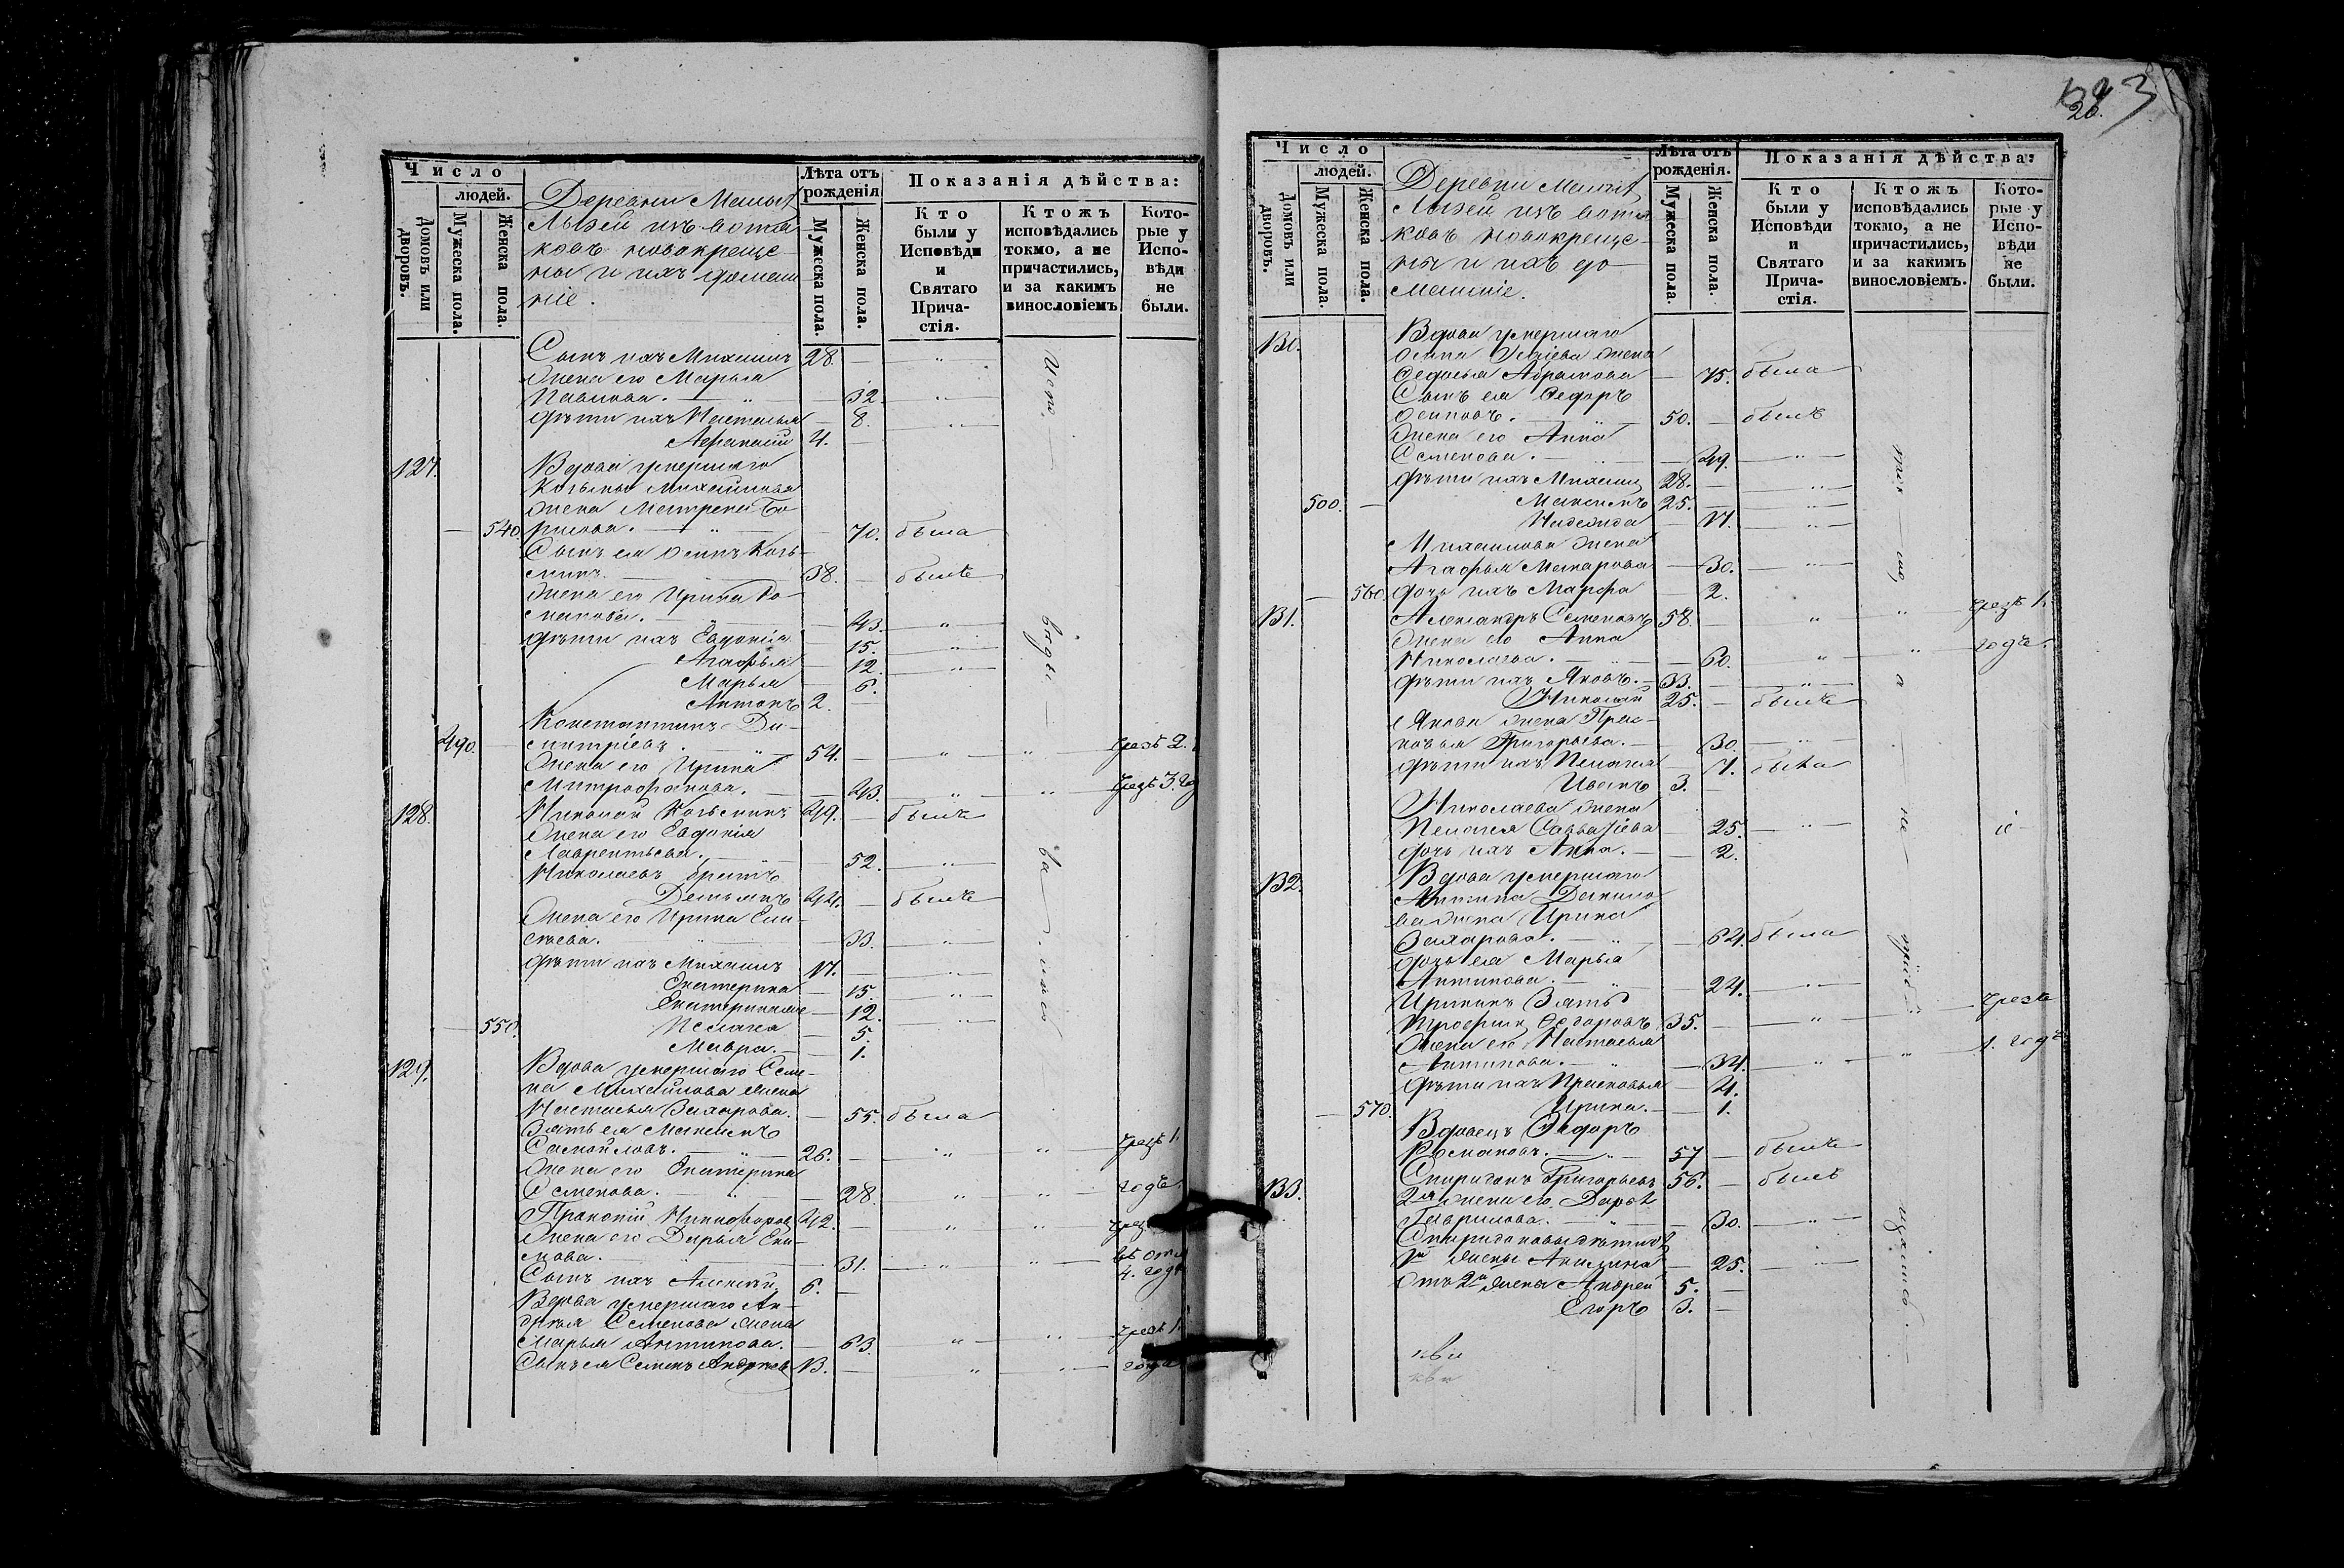 Число
людей.
Домовъ или дворовъ.
Мужеска пола.
Женска пола.
Деревни Малых
Лызей изъ вотя-
ковъ новокреще-
ны и ихъ домаш-
ніе.
Лѣта отъ рожденія
Мужеска пола.
Женска пола.
Показанія дѣйства:
Кто были у Исповѣди и Святаго Прича-стія.
Ктожъ исповѣдались токмо, а не причастились, и за какимъ винословіемъ
Кото-рые у Испо-вѣди не были.
Сынъ ихъ Михаилъ 28. — „ —
Жена его Марья
Павлова. — „ — 32. „
Дѣти ихъ Настасья — 8. — „ —
Афанасій 4. —
127. Вдова умершаго
Козьмы Михайлова
жена Матрена Бо-
540. рисова. — „ — 70. была
Сынъ ея Осипъ Козь-
минъ. 38. — былъ
Жена его Ирина Ро-
манова. — „ — 43. — „ —
Дѣти ихъ Евдокія — 15. — „ —
Агафья — 12. — „ —
Марья — 6.
Антонъ 2. —
Константинъ Ди-
490. — митріевъ. — „ — 54. — „ „ чрезъ 2.
Жена его Ирина
Митрофанова. — 43. — „ — „ — чрезъ 3. го
128. Николай Козьминъ 49. — былъ
Жена его Евдокія
Лаврентьева. — „ — 52. — „ —
Николаевъ братъ
Демьянъ 44. — былъ
Жена его Ирина Ели-
сѣева. — „ — 33. — „ —
Дѣти ихъ Михаилъ 17. — „ —
Екатерина — 15. — „ —
Екатерина — 12. — „ —
550. Пелагея — 5.
Мавра. — 1.
129. Вдова умершаго Семе-
на Михайлова жена
Настасья Захарова. — 55. была
Зять ея Максимъ
Самойловъ. — „ — 26. — „ — „ чрезъ 1.
Жена его Екатерина
Семенова. — „ — 28. „ „ годъ.
Прокопій Никифоровъ 42. — „ „ чрез
Жена его Дарья Еки-
мова. — 31. — „ — „ —
4. годъ
Сынъ ихъ Алексѣй 6. —
Вдова умершаго Ан-
дрея Семенова жена
Марья Антипова. — 63. „ — „ — чрезъ 1.
Сынъ ея Семенъ Андреев 13. — „ „ — года
Испо —
вѣды —
ва —
лись
26.
Число
людей.
Домовъ или дворовъ.
Мужеска пола.
Женска пола.
Деревни Малых
Лызей изъ вотя-
ковъ новокреще-
ны и ихъ до-
машніе.
Лѣта отъ рожденія.
Мужеска пола.
Женска пола.
Показанія дѣйства:
Кто были у Исповѣди и Святаго Прича-стія.
Ктожъ исповѣдались токмо, а не причастились, и за какимъ винословіемъ.
Кото-рые у Испо-вѣди не были.
130. Вдова умершаго
Осипа жена
Федосья Абрамова — 75. была
Сынъ ея Федоръ
Осиповъ. — „ — 50. — былъ
Жена его Анна
Семенова. — „ — 49. — „ —
Дѣти ихъ Михаилъ 28. — „ —
500. — Максимъ 25. — „ —
Надежда — 17. — „ —
Михаилова жена
Агафья Макарова — 30. — „ —
— 560. Дочь ихъ Марфа — 2.
131. Александръ Семеновъ 58. — „ — „ — чрезъ 1.
Жена его Анна
Николаева. — „ — 60. „ „ года.
Дѣти ихъ Яковъ. — 33. — „ —
Николай 25. — былъ
Якова жена Прас-
ковья Григорьева. — 30. — „ —
Дѣти ихъ Пелагея — 7. была
Иванъ 3. —
Николаева жена
Пелагея Савватіева — 25. — „ —
Дочь ихъ Анна. — 2.
132. Вдова умершаго
Антипа Данило-
ва жена Ирина
Захарова. — „ — 64. была
Дочь ея Марья
Антипова. — „ — 24. — „ —
Ирининъ зять
Трофимъ Федоровъ 35. — „ — чрезъ
Жена его Настасья
Антипова. — „ — 34. — „ — „ — 1. годъ
Дѣти ихъ Прасковья — 4.
— 570. Ирина. — 1.
Вдовецъ Федоръ
Романовъ. — „ — 57 — былъ
133. Спиридонъ Григорьевъ 56. — былъ
2я жена его Дарья
Гаврилова. — „ — 30. — „ —
Спиридоновы дѣти отъ
1й жены Акилина — 25. — „ —
Отъ 2й жены Андрей 5. —
Егоръ 3. —